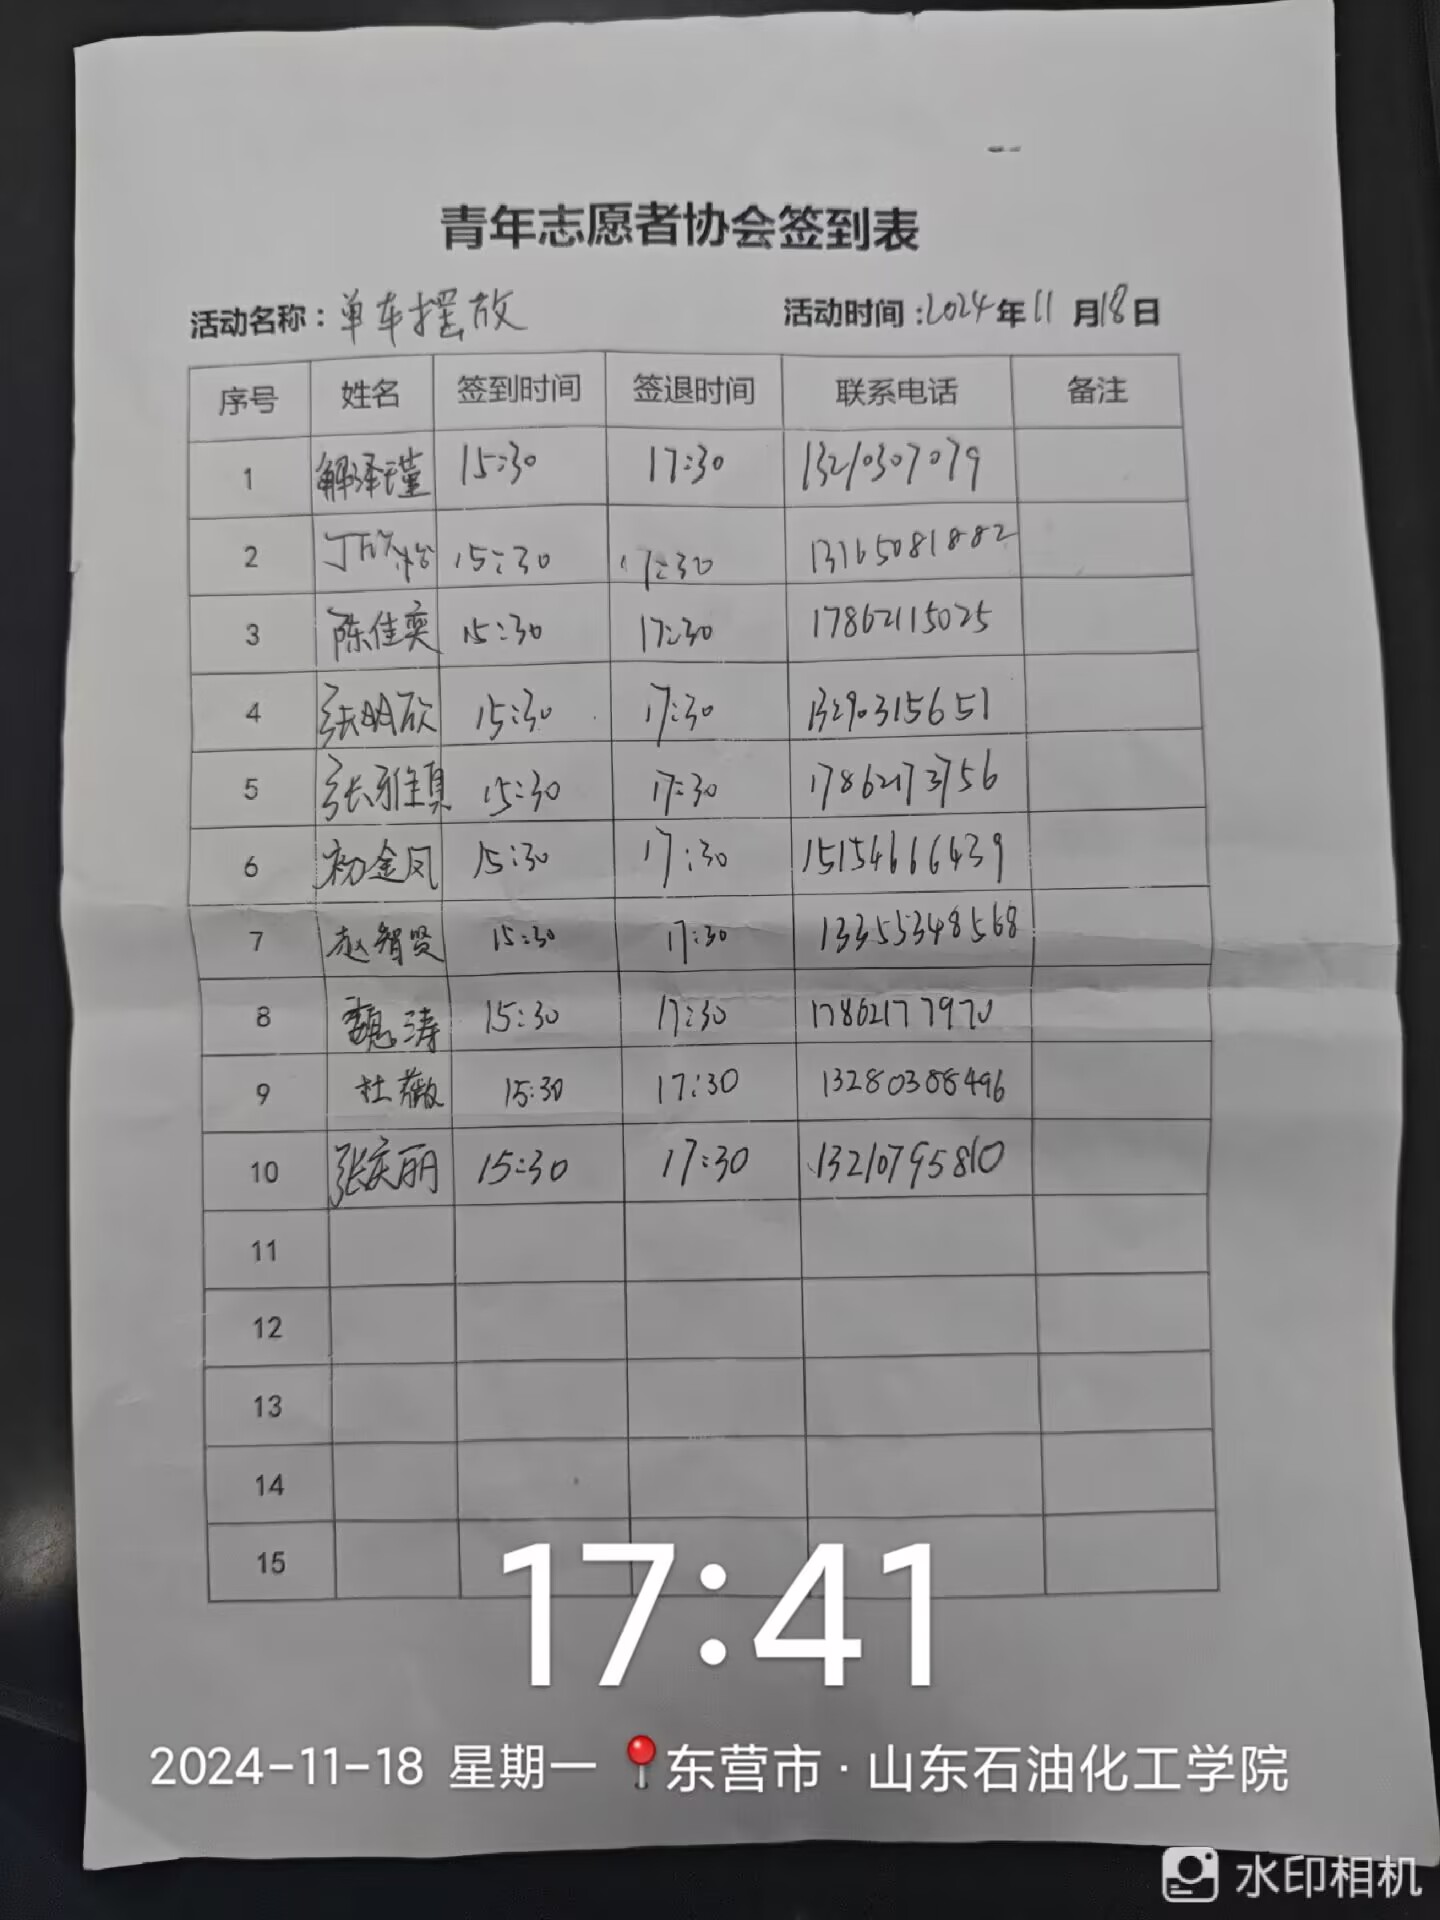 青年志愿者协会签到表
活动名称：单车摆放 活动时间：2024年11月18日
序号 姓名 签到时间 签退时间 联系电话 备注
1 解泽瑾 15:30 17:30
2 15:30 17:30 13165081882
3 陈佳奕 15:30 17:30 17862115025
4 张明欣 15:30 17:30 13290315651
5 张雅真 15:30 17:30 17862173756
6 初金凤 15:30 17:30 15154666439
7 赵智贤 15:30 17:30 13355348568
8 魏涛 15:30 17:30 17862177970
9 杜薇 15:30 17:30 13280388496
10 张庆丽 15:30 17:30 13210795810
11
12
13
14
15
17:41
2024-11-18 星期一 东营市·山东石油化工学院
水印相机